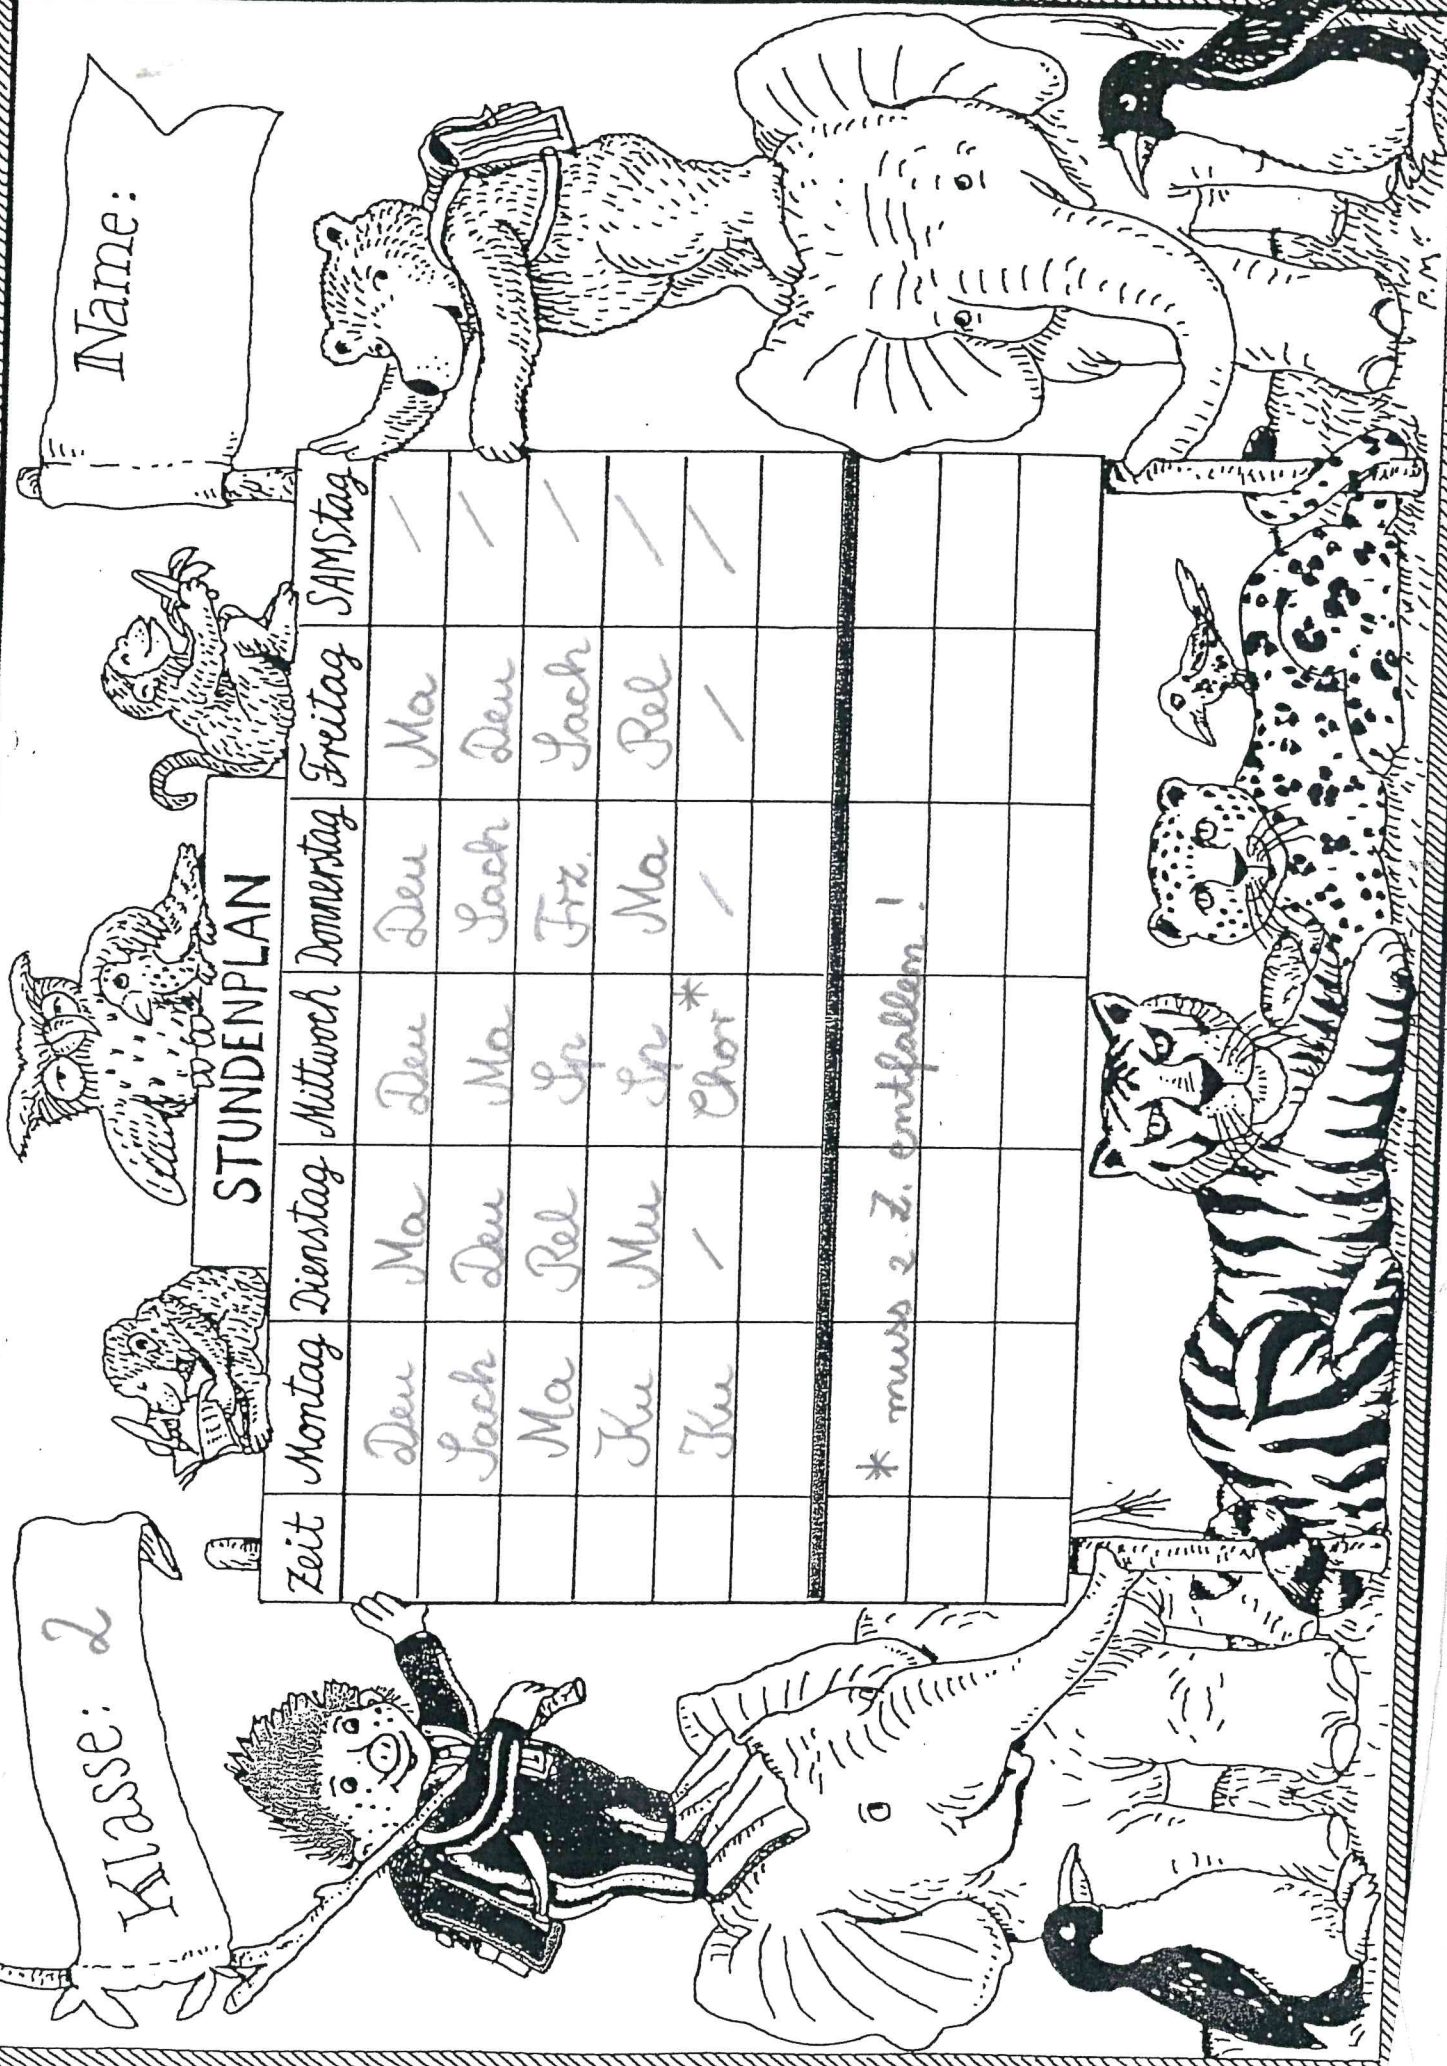 Klasse: 2
Name:
STUNDENPLAN
Zeit Montag Dienstag Mittwoch Donnerstag Freitag SAMStag
Deu Ma Deu Deu Ma /
Sach Deu Ma Sach Deu /
Ma Rel Sp Frz. Sach /
Ku Mu Sp Ma Rel /
Ku / Chor* / / /
* muss z. Z. entfallen!
P.M